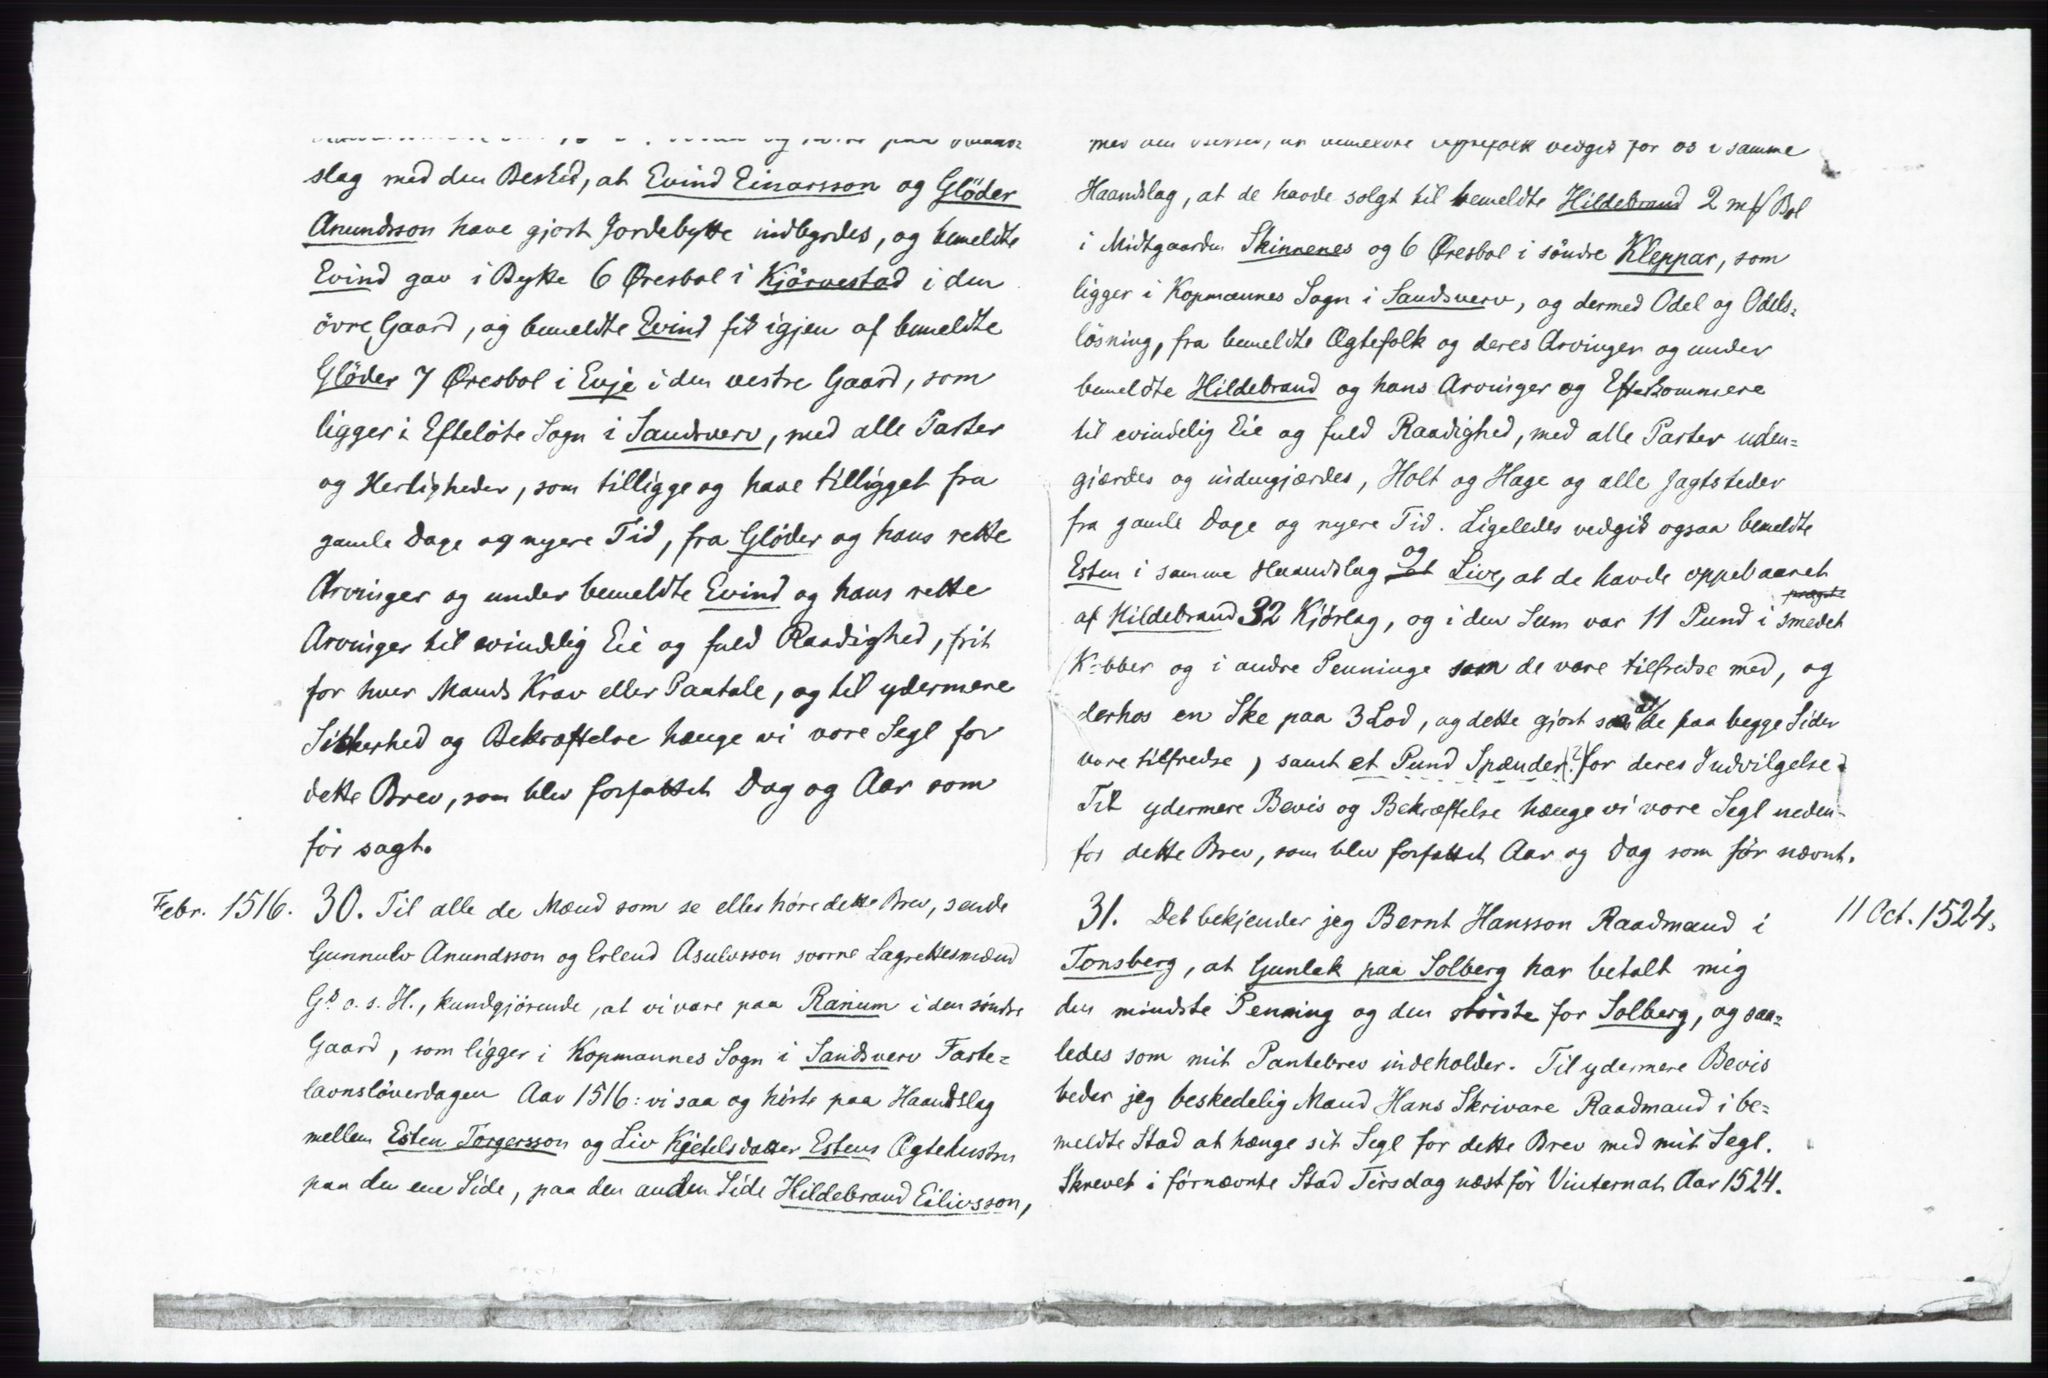 slag med den Besked, at Evind Einarsson og Glöder
Anundsson have gjort Jordebytte indbyrdes, og bemeldte
Evind gav i Bytte 6 Øresbol i Kjörvestad i den
övre Gaard, og bemeldte Evind fik igjen af bemeldte
Glöder 7 Øresbol i Evje i den vestre Gaard, som
ligger i Efteløte Sogn i Sandsverv, med alle Parter
og Herligheder, som tilligge og have tilligget fra
gamle Dage og nyere Tid, fra Glöder og hans rette
Arvinger og under bemeldte Evind og hans rette
Arvinger til evindelig Eie og fuld Raadighed, frit
for hver Mands Krav eller Paatale, og til ydermere
Sikkerhed og Bekræftelse hænge vi vore Segl for
dette Brev, som blev forfattet Dag og Aar som
för sagt.
Febr. 1516. 30. Til alle de Mænd som se eller høre dette Brev, sende
Gunnulv Anundsson og Erlend Asulvsson svorne Lagrettesmænd
Gs. o. s. H., kundgjörende, at vi vare paa Ranum i den söndre
Gaard, som ligger i Kopmannes Sogn i Sandsverv Faste-
lavnslöverdagen Aar 1516: vi saa og hörte paa Haandslag
mellem Esten Torgersson og Liv Kjetelsdatter Estens Ægtehustru
paa den ene Side, paa den anden Side Hildebrand Eilivsson,
med den Besked, at bemeldte Ægtefolk vedgik for os i samme
Haandslag, at de havde solgt til bemeldte Hildebrand 2 mk Bol
i Midtgaarden Skinnenes og 6 Øresbol i söndre Kleppar, som
ligger i Kopmannes Sogn i Sandsverv, og dermed Odel og Odels-
lösning, fra bemeldte Ægtefolk og deres Arvinger og under
bemeldte Hildebrand og hans Arvinger og Efterkommere
til evindelig Eie og fuld Raadighed, med alle Parter uden-
gjærdes og indengjærdes, Holt og Hage og alle Jagtsteder
fra gamle Dage og nyere Tid. Ligeledes vedgik ogsaa bemeldte
Esten i samme Haandslag og Live, at de havde oppebaaret
af Hildebrand 32 Kjørlag, og i den Sum var 11 Pund i smedet
Kobber og i andre Penninge som de vare tilfredse med, og
derhos en Ske paa 3 Lod, og dette gjort saa at de paa begge Sider
vare tilfredse, samt et Pund Spænder (?) for deres Indvilgelse.
Til ydermere Bevis og Bekræftelse hænge vi vore Segl neden-
for dette Brev, som blev forfattet Aar og Dag som för nævnt.
31. Det bekjender jeg Bernt Hansson Raadmand i 11 Oct. 1524.
Tonsberg, at Gunlek paa Solberg har betalt mig
den mindste Penning og den störste for Solberg, og saa-
ledes som mit Pantebrev indeholder. Til ydermere Bevis
beder jeg beskedelig Mand Hans Skrivare Raadmand i be-
meldte Stad at hænge sit Segl for dette Brev med mit Segl.
Skrevet i förnævnte Stad Tirsdag næst för Vinternat Aar 1524.